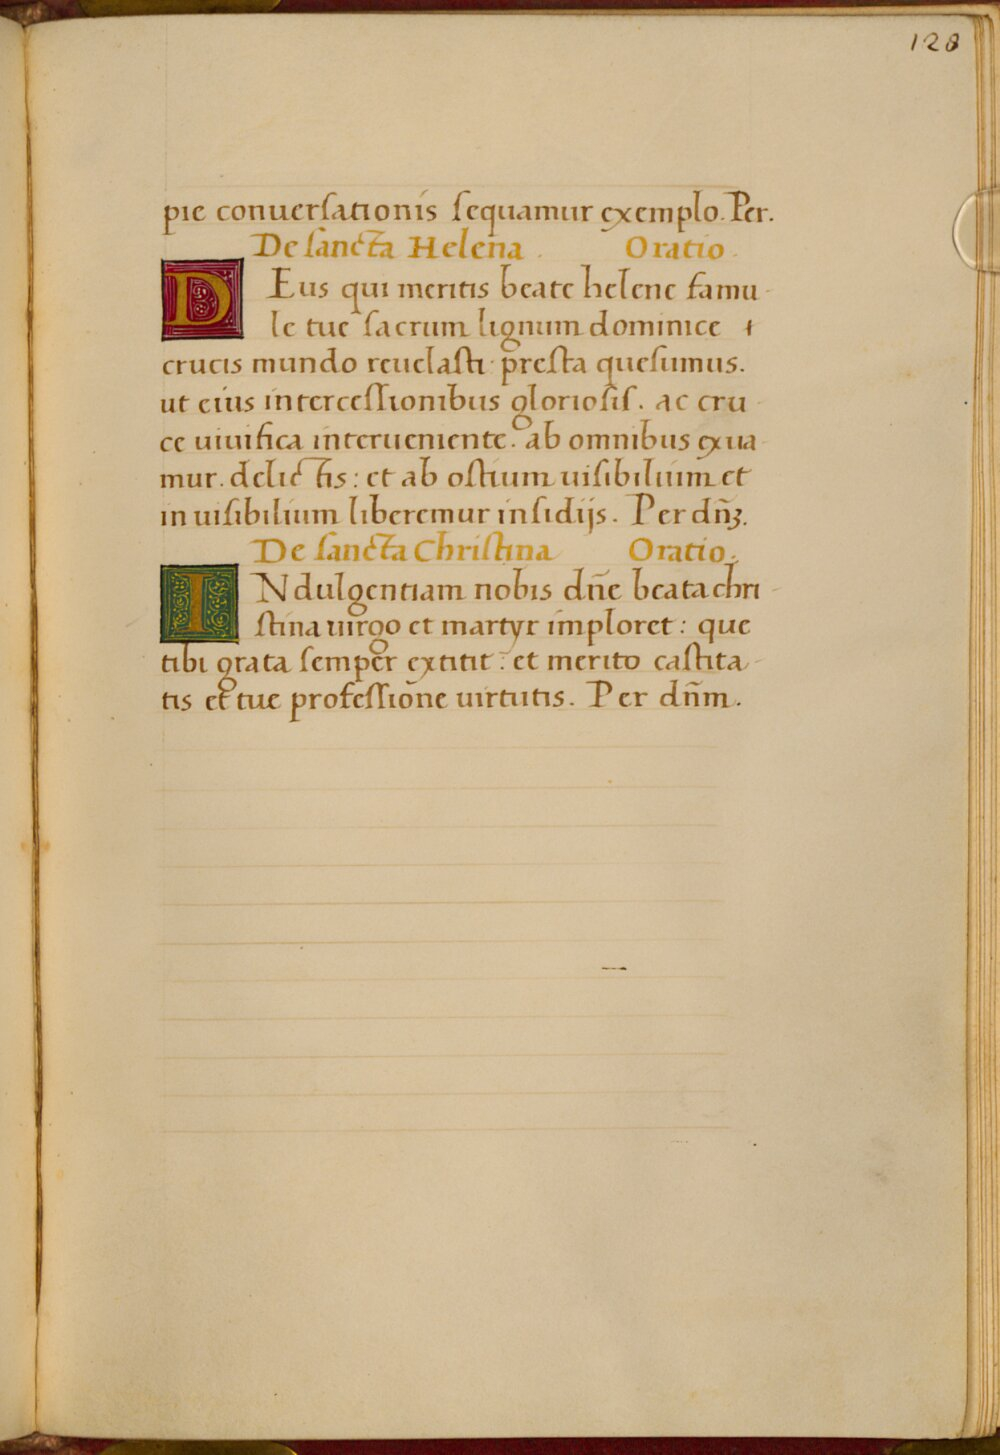 128
pie conuersationis sequamur exemplo. Per.
De sancta Helena. Oratio.
DEus qui meritis beate helene famu
le tue sacrum lignum dominice
crucis mundo reuelasti presta quesumus.
ut eius intercessionibus gloriosis. ac cru
ce uiuifica interueniente. ab omnibus exua
mur. delictis: et ab ostium uisibilium et
inuisibilium liberemur insidijs. Per dn̄ꝫ.
De sancta Christina Oratio.
INdulgentiam nobis dn̄e beata chri
stina uirgo et martyr imploret: que
tibi grata semper extitit: et merito castita
tis et tue professione uirtutis. Per dn̄m.